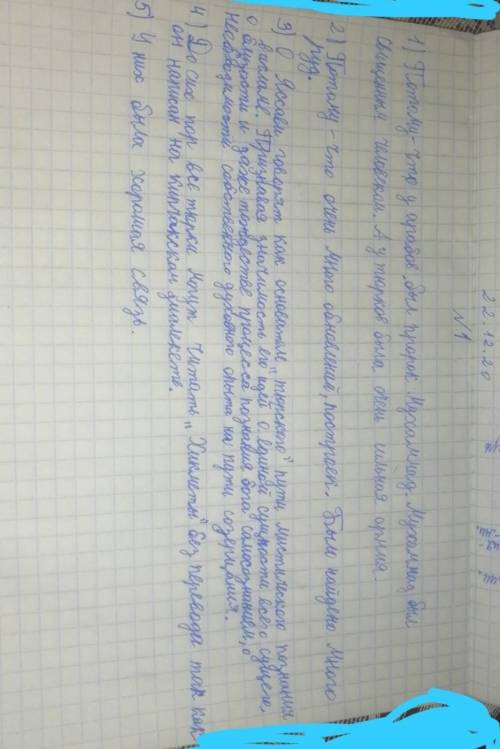 22.12.20
№1
1) Потому-что у арабов был пророк Мухаммад. Мухаммад был
священым человком. А у тюрков была очень сильная армия.
2) Потому-что очень много обновлений, построек. Были найдено много
руд.
3) О Яссави говорят как основатель "тюркского" пути мистического познания
в исламе. Признавая значимость его идей о единой сущности всего сущего,
о бытие и даже тождестве процесса познания бога самосознанием, о
необходимости собственного духовного опыта на пути созерцания.
4) До сих пор все тюрки могут читать "Хикметы" без перевода так как
он написан на Кипчакском диалекте.
5) У них была хорошая связь.